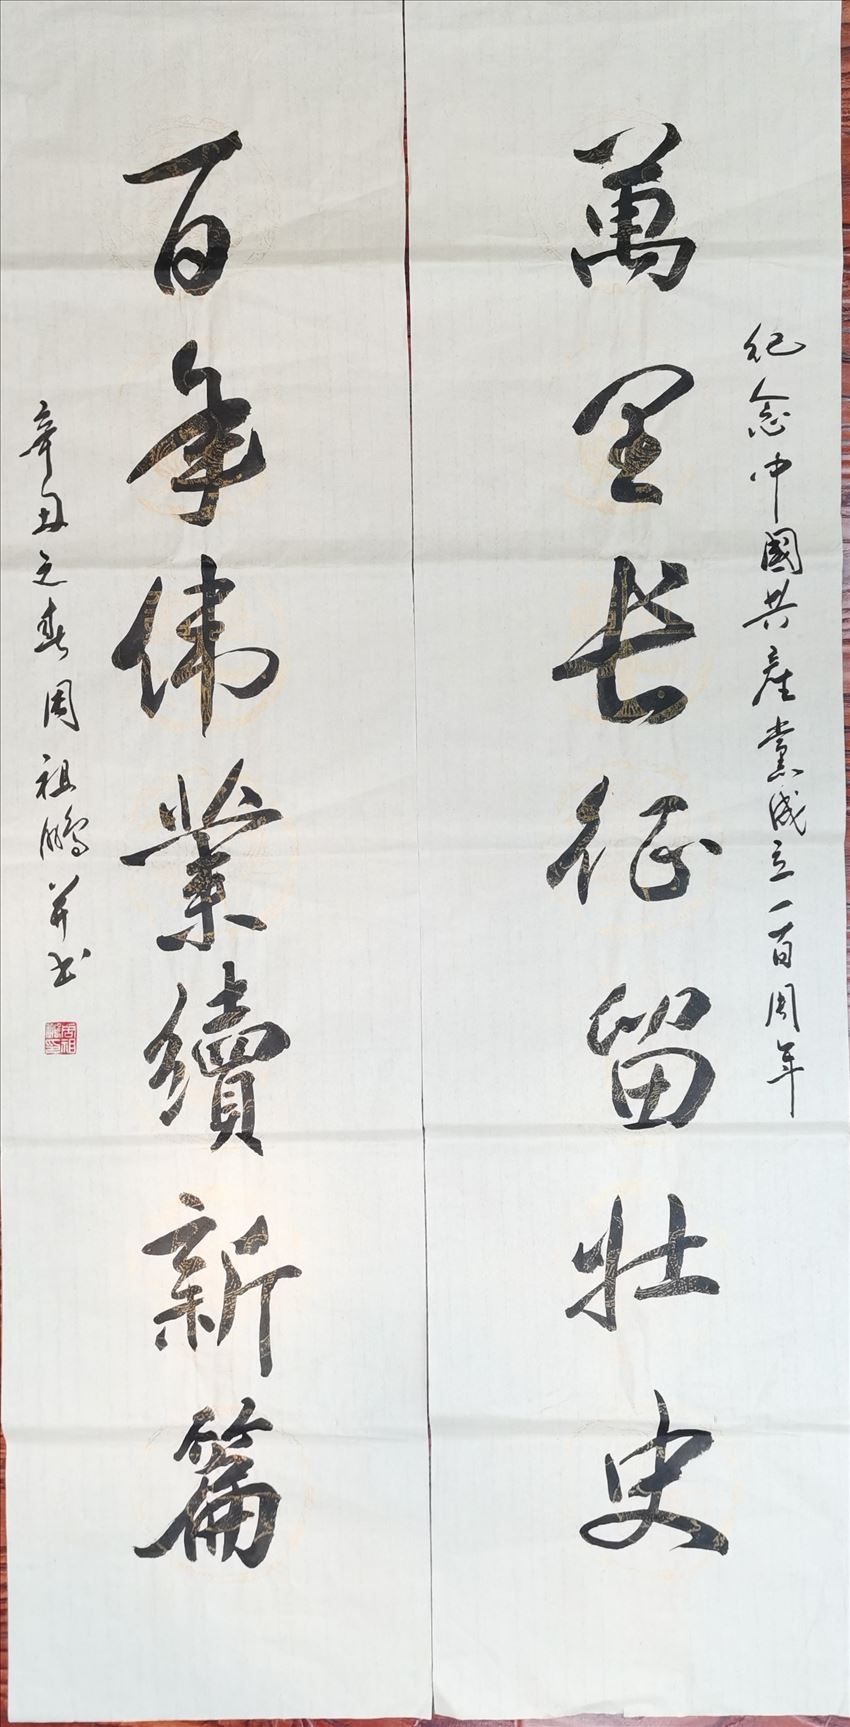 紀念中國共産黨成立一百周年
萬里长征留壮史
百年伟業續新篇
辛丑之春周祖鵬并书